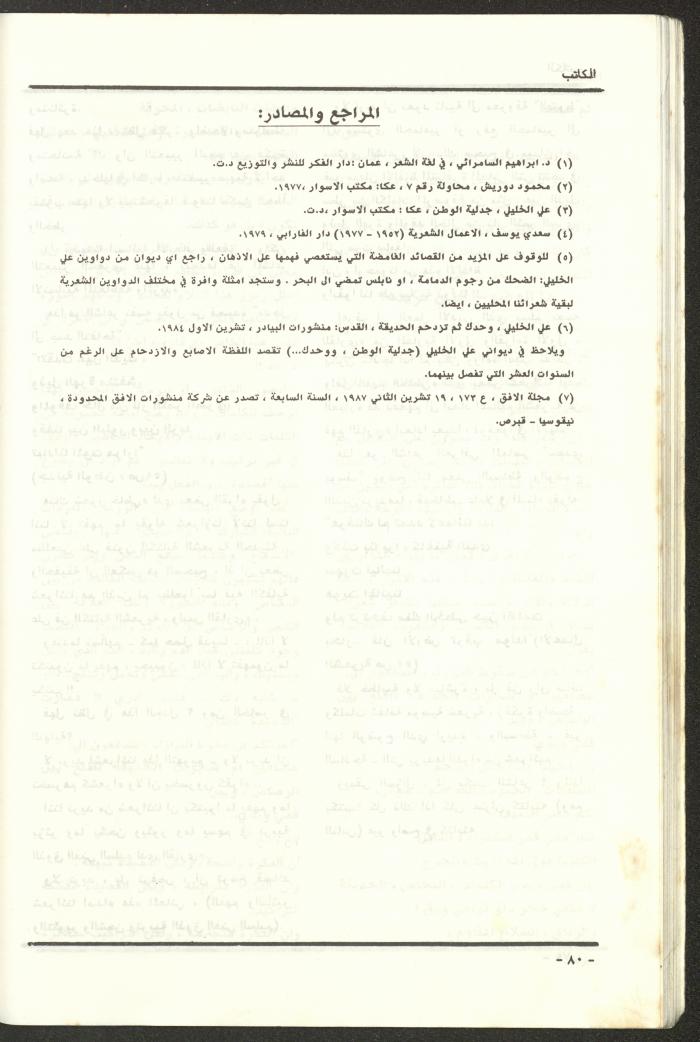 الكاتب
المراجع والمصادر:
(١) د. ابراهيم السامرائي ، في لغة الشعر ، عمان :دار الفكر للنشر والتوزيع د.ت.
(٢) محمود دوريش ، محاولة رقم ٧ ، عكا: مكتب الاسوار ،١٩٧٧.
(٣) علي الخليلي ، جدلية الوطن ، عكا : مكتب الاسوار ،د.ت.
(٤) سعدي يوسف ، الاعمال الشعرية (١٩٥٢ - ١٩٧٧) دار الفارابي ، ١٩٧٩.
(٥) للوقوف عل المزيد من القصائد الغامضة التي يستعصي فهمها عل الاذهان ، راجع اي ديوان من دواوين علي
الخليلي: الضحك من رجوم الدمامة ، او نابلس تمضي ال البحر . وستجد امثلة وافرة في مختلف الدواوين الشعرية
لبقية شعرائنا المحليين ، ايضا.
(٦) علي الخليلي ، وحدك ثم تزدحم الحديقة ، القدس: منشورات البيادر ، تشرين الاول ١٩٨٤.
ويلاحظ في ديواني علي الخليلي (جدلية الوطن ، ووحدك...) تقصد اللفظة الاصابع والازدحام عل الرغم من
السنوات العشر التي تفصل بينهما.
(٧) مجلة الافق ، ع ١٧٣ ، ١٩ تشرين الثاني ١٩٨٧ ، السنة السابعة ، تصدر عن شركة منشورات الافق المحدودة ،
نيقوسيا - قبرص.
- ٨٠ -